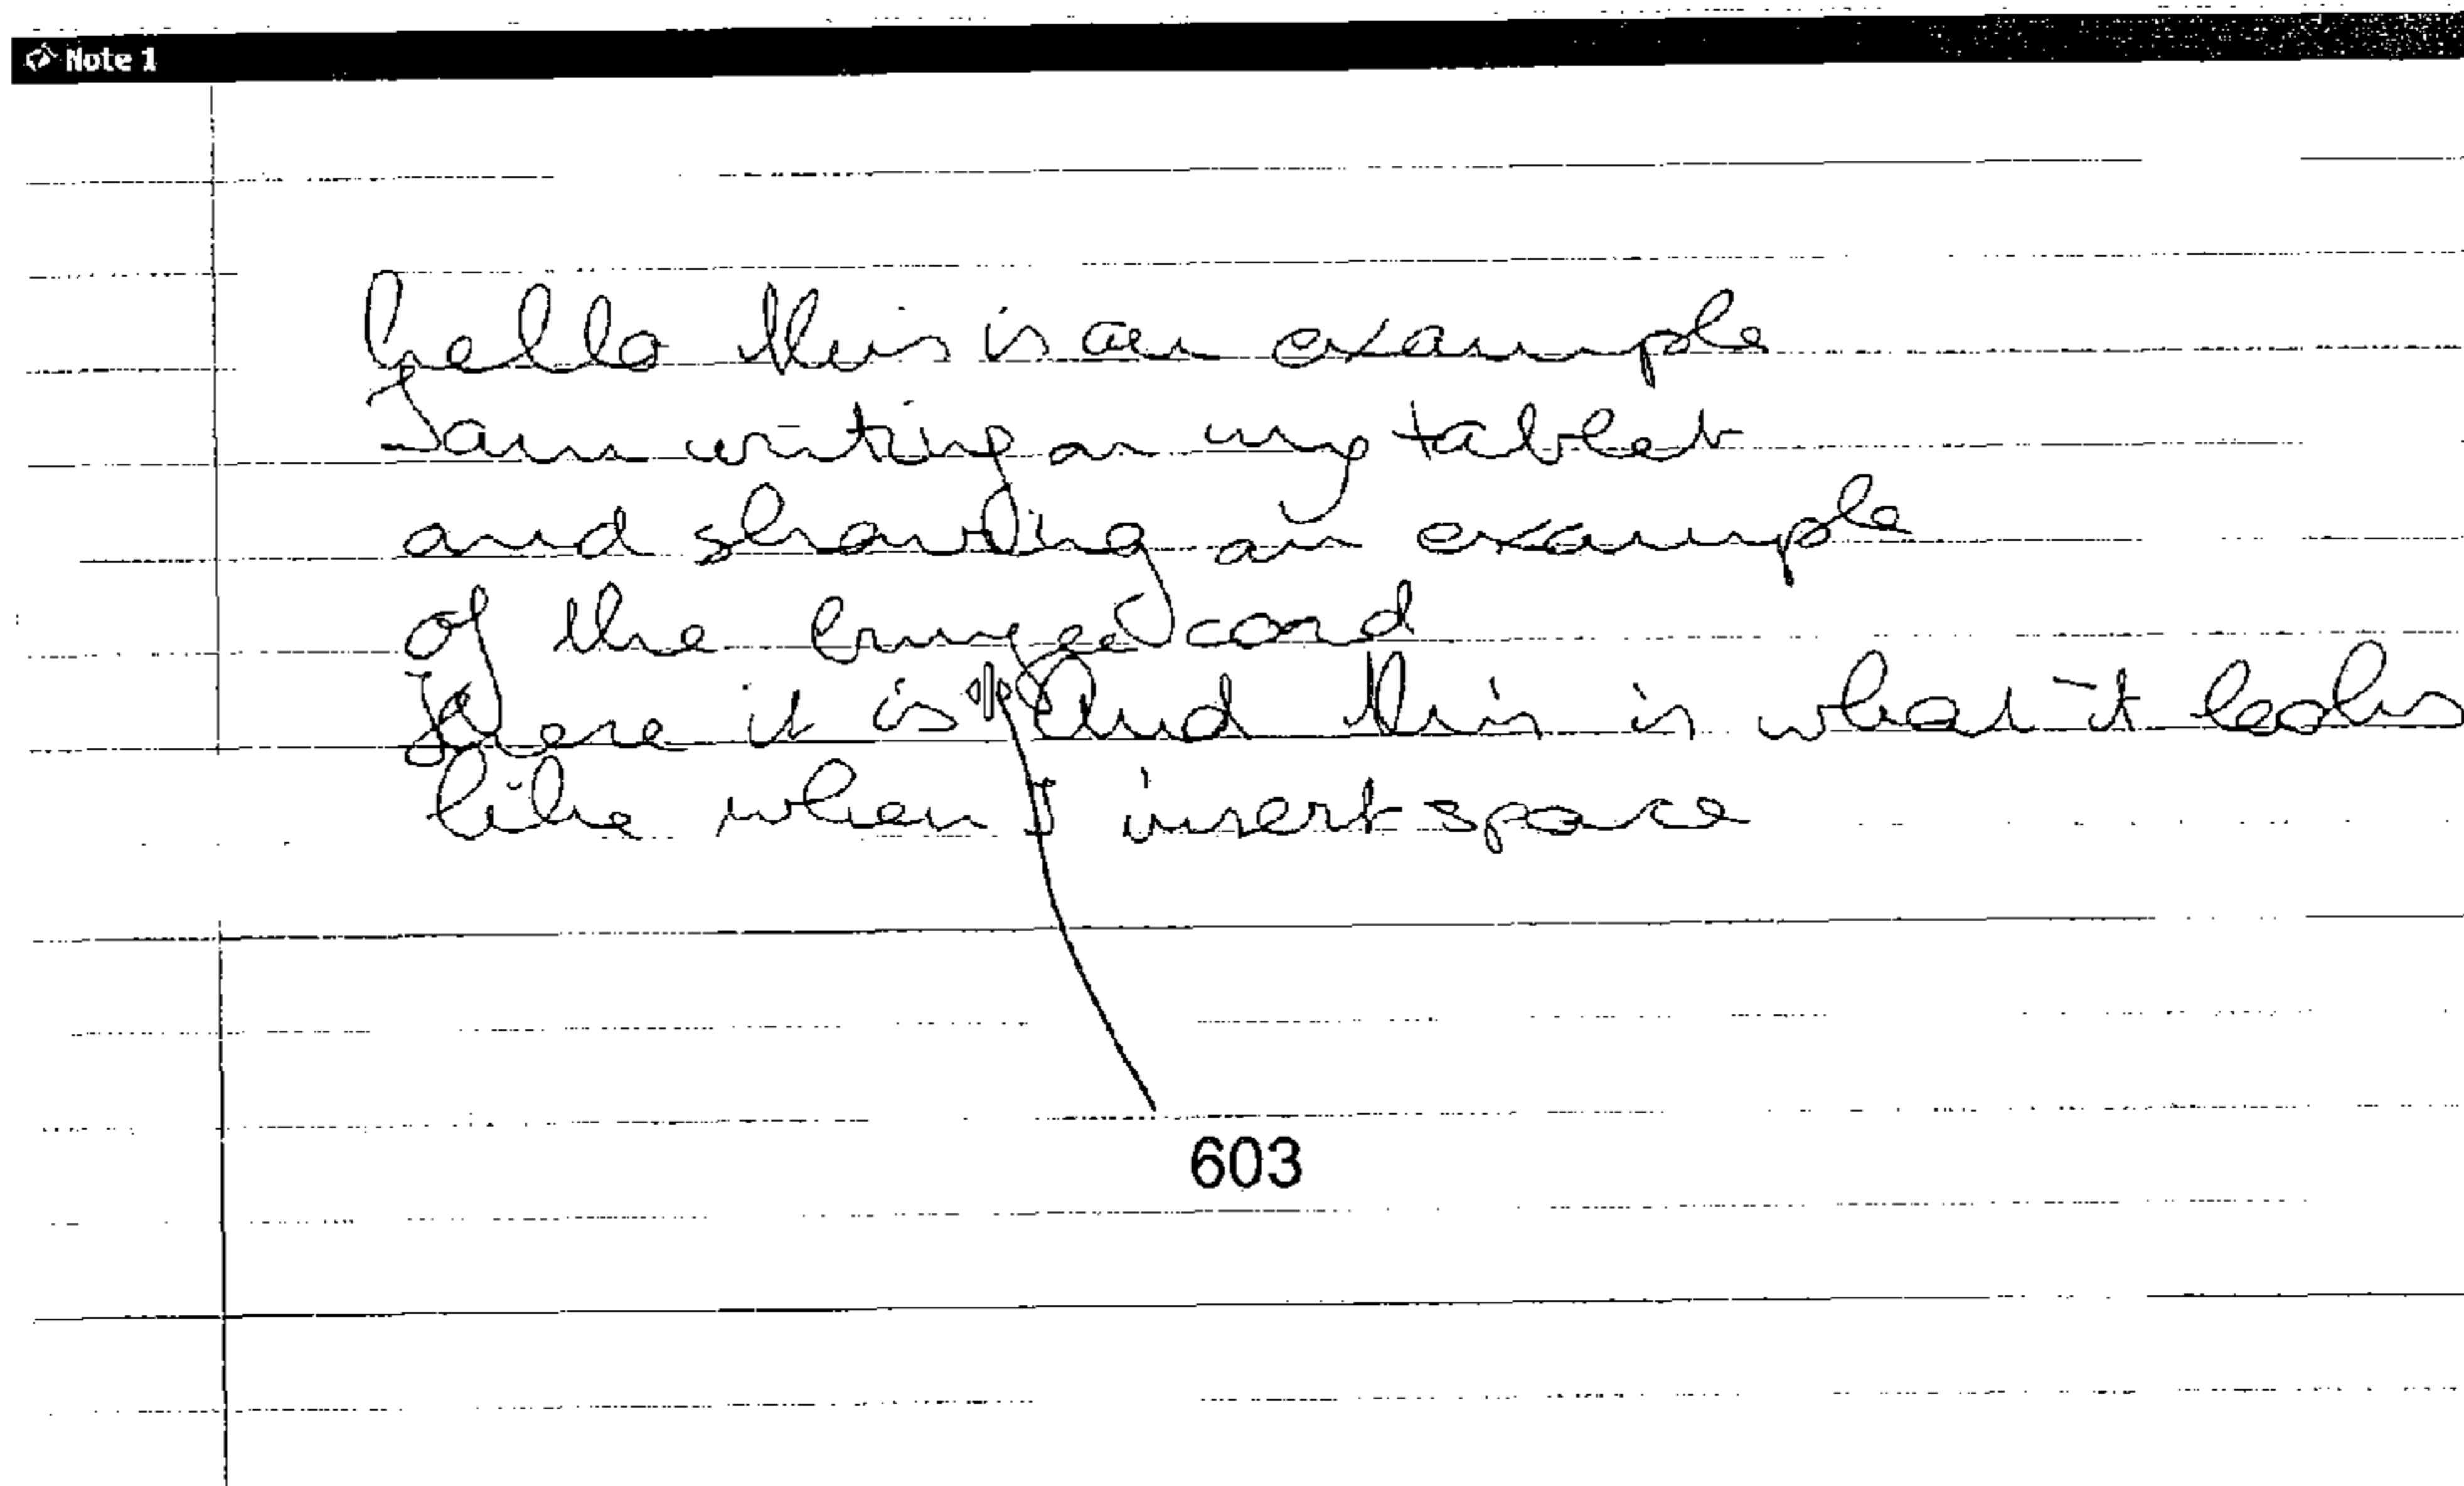 Note 1
hello this is an example
I am writing on my tablet
and shawing an example
of the card
Here it is And this is what it looks
like when I insert space
603